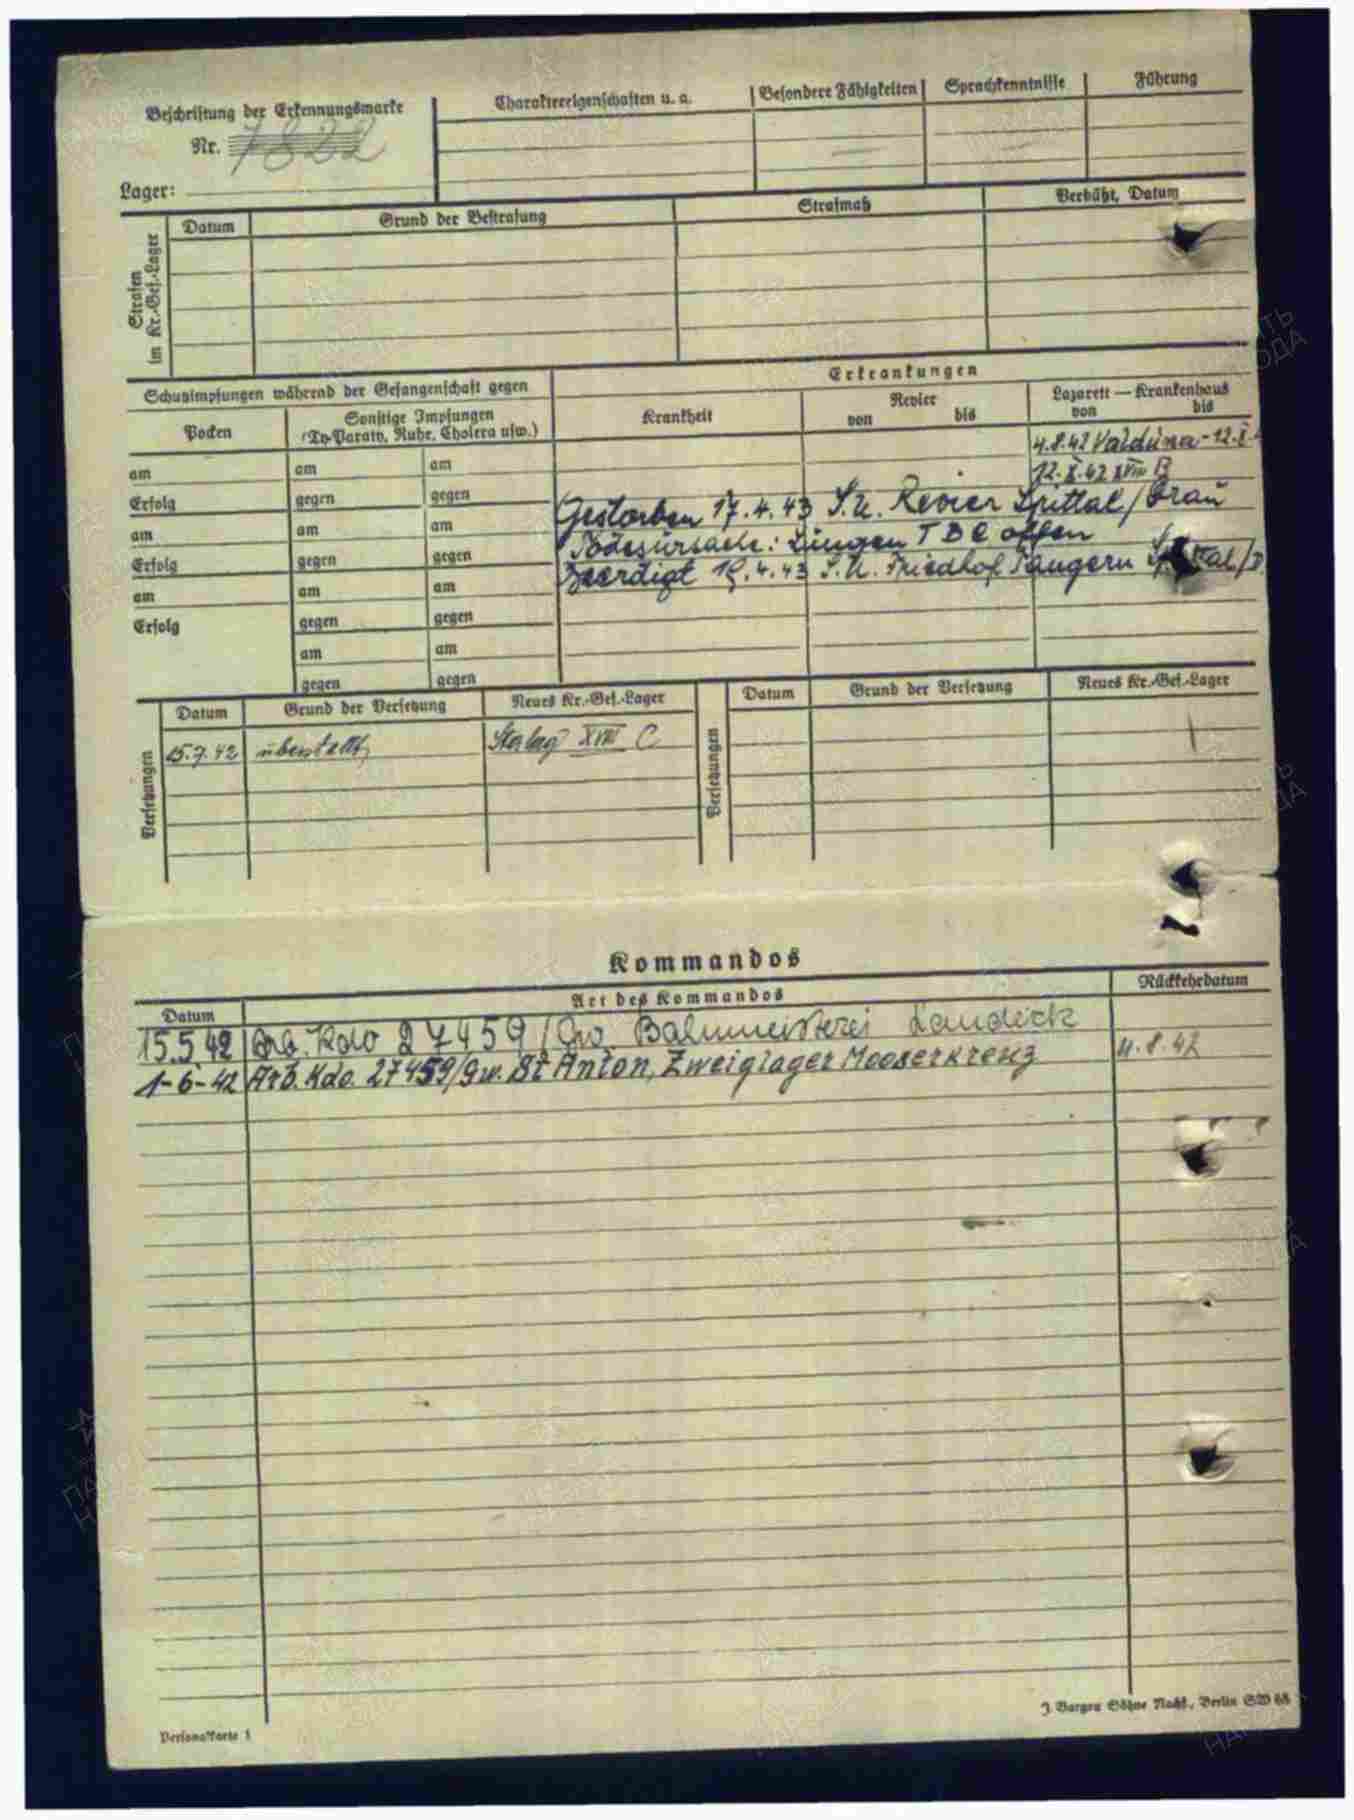 Beschriftung der Erkennungsmarke
Nr. 7822
Lager:
Charaktereigenschaften u. a.
Besondere Fähigkeiten
Sprachkenntnisse
Führung
Strafen im Kr.-Gef.-Lager
Datum
Grund der Bestrafung
Strafmaß
Verbüßt, Datum
Schutzimpfungen während der Gefangenschaft gegen
Erkrankungen
Pocken
Sonstige Impfungen
(Ty-Paraty, Ruhr, Cholera usw.)
Krankheit
Revier
von bis
Lazarett — Krankenhaus
von bis
am am am
4.8.42 Valduna - 12.X.
Erfolg gegen gegen
12.X.42 XVIII B
Gestorben 17.4.43 S.U. Revier Spittal/Drau
am am am
Todesursache: Lungen TBC offen
Erfolg gegen gegen
Beerdigt 19.4.43 S.U. Friedhof Tangern Spittal/D
am am am
Erfolg gegen gegen
am am
gegen gegen
Versetzungen
Datum Grund der Versetzung Neues Kr.-Gef.-Lager
15.7.42 überstellt Stalag XVIII C
Versetzungen
Datum Grund der Versetzung Neues Kr.-Gef.-Lager
Kommandos
Datum Art des Kommandos Rückkehrdatum
15.5.42 Arb. Kdo 27459/Gw. Bahnmeisterei Landeck
1-6-42 Arb. Kdo. 27459/Gw. St Anton, Zweiglager Mooserkreuz 4.8.42
Personalkarte 1
J. Bargou Söhne Nachf., Berlin SW 68